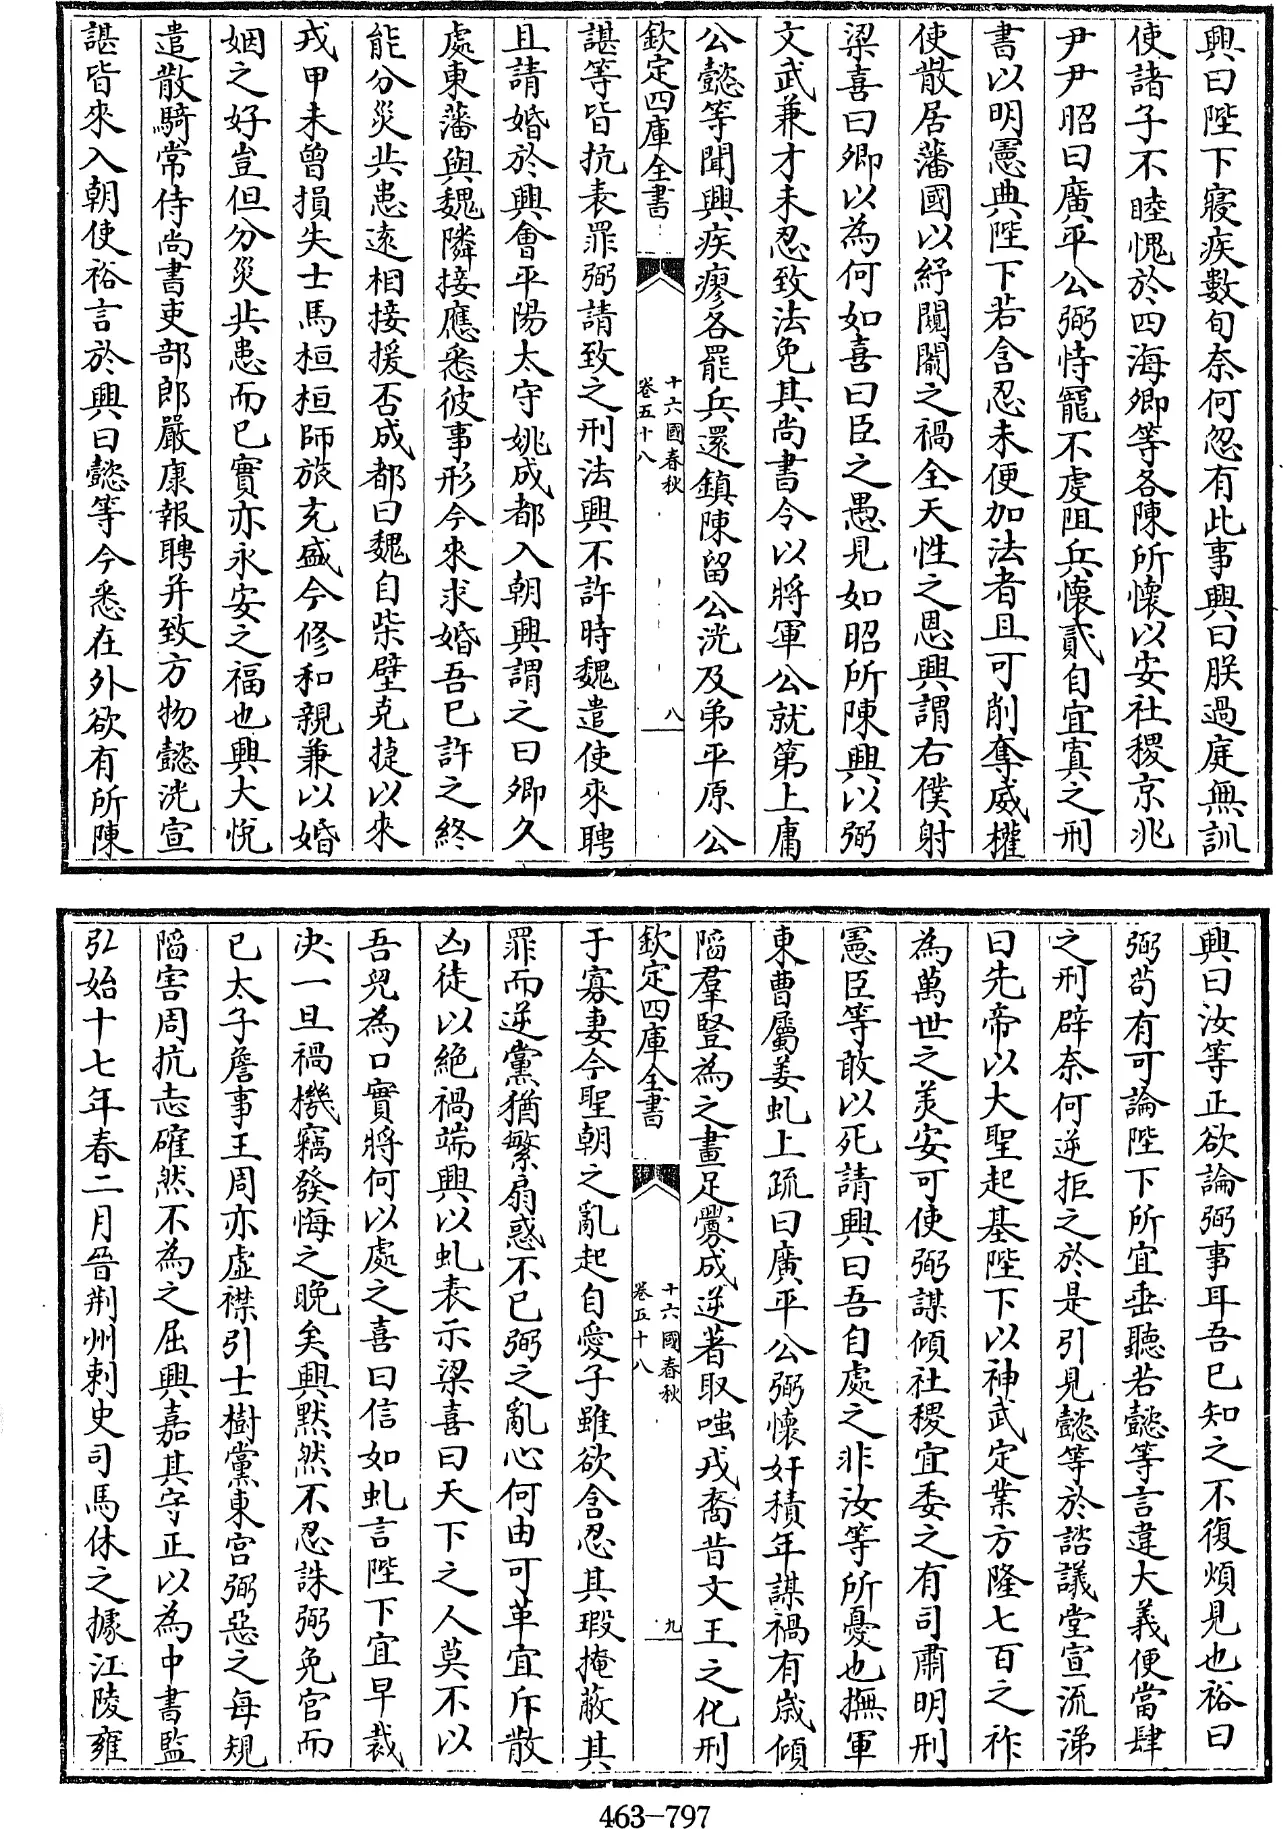 興曰陛下寢疾數旬奈何忽有此事興曰朕過庭無訓
使諸子不睦愧於四海卿等各陳所懷以安社稷京兆
尹尹昭曰廣平公弼恃寵不虔阻兵懷貳自宜寘之刑
書以明憲典陛下若含忍未便加法者且可削奪威權
使散居藩國以紓闚䦱之禍全天性之恩興謂右僕射
梁喜曰卿以為何如喜曰臣之愚見如昭所陳興以弼
文武兼才未忍致法免其尚書令以將軍公就第上庸
公懿等聞興疾瘳各罷兵還鎮陳留公洸及弟平原公
欽定四庫全書
十六國春秋
卷五十八
八
諶等皆抗表罪弼請致之刑法興不許時魏遣使來聘
且請婚於興會平陽太守姚成都入朝興謂之曰卿久
處東藩與魏隣接應悉彼事形今來求婚吾已許之終
能分災共患遠相接援否成都曰魏自柴壁克捷以來
戎甲未曾損失士馬桓桓師旅充盛今修和親兼以婚
姻之好豈但分災共患而已實亦永安之福也興大悅
遣散騎常侍尚書吏部郎嚴康報聘并致方物懿洸宣
諶皆來入朝使裕言於興曰懿等今悉在外欲有所陳
興曰汝等正欲論弼事耳吾已知之不復煩見也裕曰
弼苟有可論陛下所宜垂聽若懿等言違大義便當肆
之刑辟奈何逆拒之於是引見懿等於諮議堂宣流涕
曰先帝以大聖起基陛下以神武定業方隆七百之祚
為萬世之美安可使弼謀傾社稷宜委之有司肅明刑
憲臣等敢以死請興曰吾自處之非汝等所憂也撫軍
東曹屬姜虬上疏曰廣平公弼懷奸積年謀禍有歲傾
陷羣豎為之畫足釁成逆著取嗤戎裔昔文王之化刑
欽定四庫全書
十六國春秋
卷五十八
九
于寡妻今聖朝之亂起自愛子雖欲含忍其瑕掩蔽其
罪而逆黨猶繁扇惑不已弼之亂心何由可革宜斥散
凶徒以絕禍端興以虬表示梁喜曰天下之人莫不以
吾兒為口實將何以處之喜曰信如虬言陛下宜早裁
决一旦禍機竊發悔之晚矣興默然不忍誅弼免官而
已太子詹事王周亦虛襟引士樹黨東宮弼惡之每規
陷害周抗志確然不為之屈興嘉其守正以為中書監
弘始十七年春二月晉荆州刺史司馬休之據江陵雍
463-797